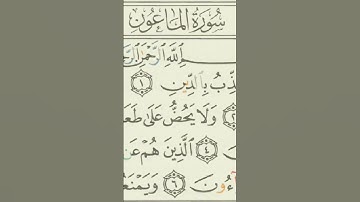 سُورَةُ الْمَاعُونِ
اللَّهِ الرَّحْمَٰنِ الرَّ
ذِّبُ بِالدِّينِ ١
٢ وَلَا يَحُضُّ عَلَىٰ طَعَ
٤ الَّذِينَ هُمْ عَن
اءُونَ ٦ وَيَمْنَعُ